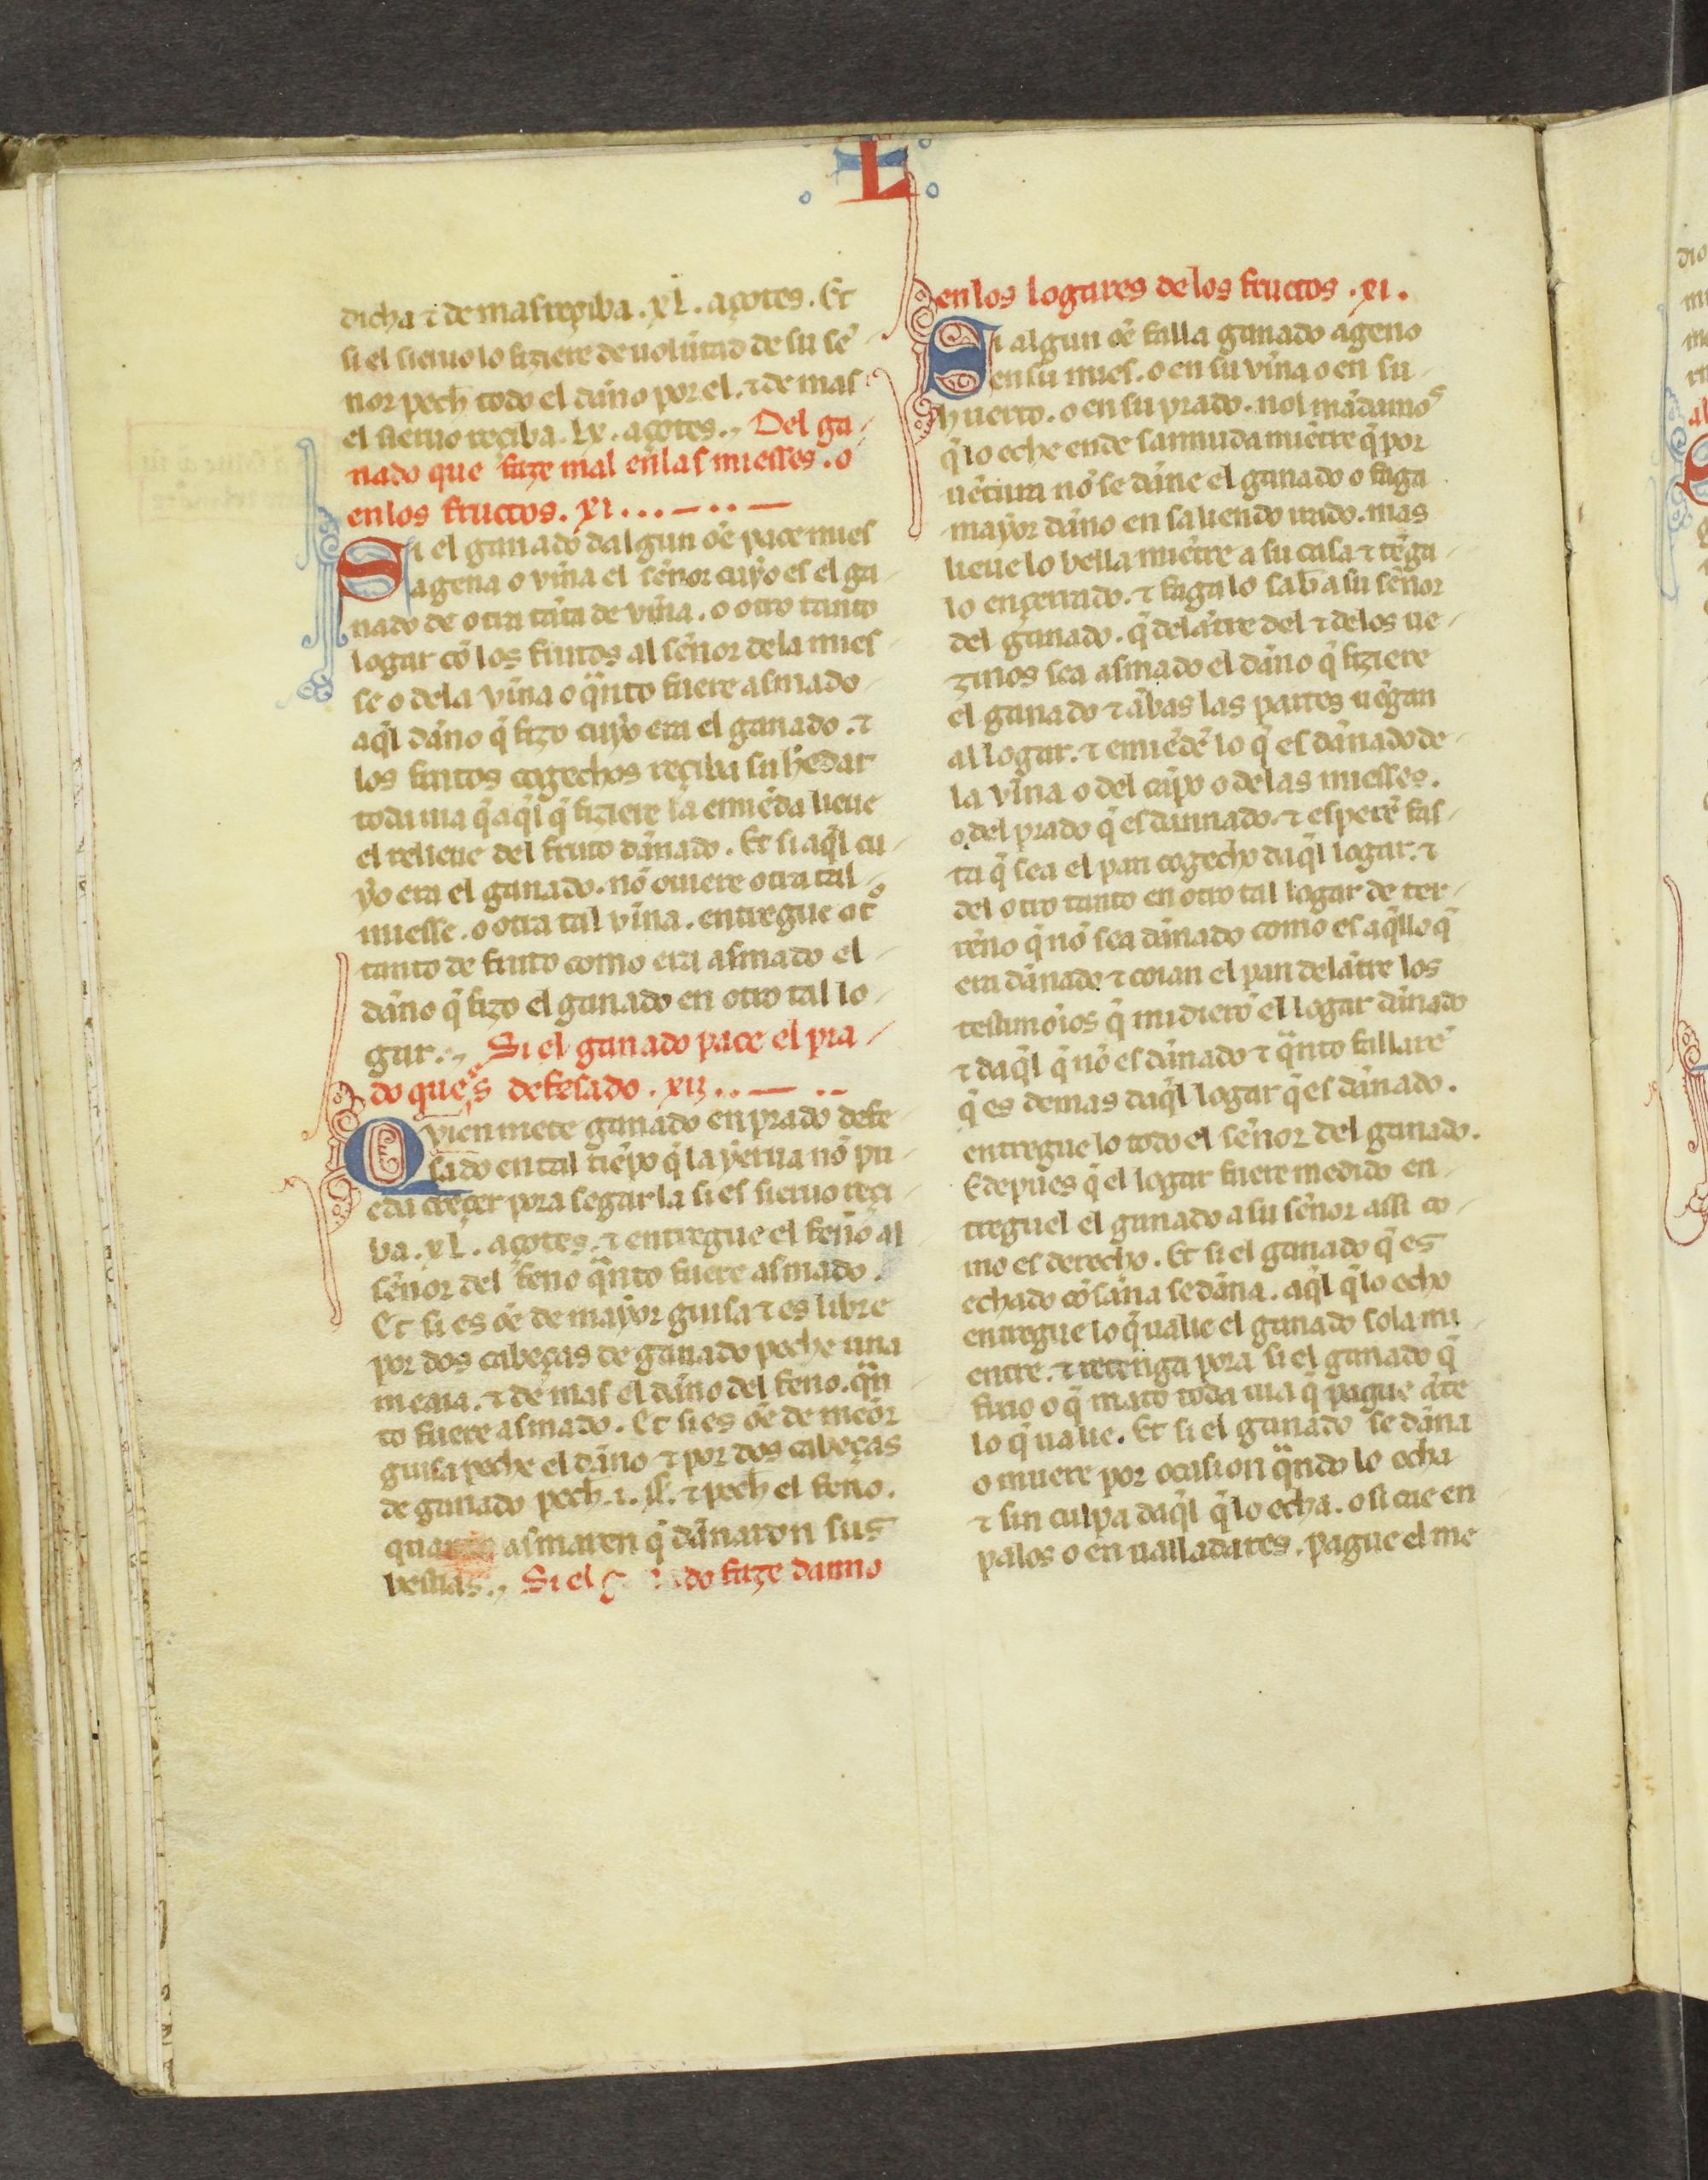 L
dicha ⁊ de mas reçiba .xl. açotes. Et
si el sieruo lo fiziere de uolũtad de su se᷈
nor pech̃ todo el dãno por el. ⁊ de mas
el sieruo reçiba .lx. açotes. Del ga
nado que faze mal en las miesses. o
en los fructos. xi.
Si el ganado dalgun oẽ pace mies
agena o vĩna el sẽnor cuyo es el ga
nado de otra tãta de vĩna. o otro tanto
logar cõ los frutos al sẽnor dela mies
se o dela vĩna o q̃nto fuere asmado
aq̃l dãno q̃ fizo cuyo era el ganado. ⁊
los frutos cogechos reçiba su h̃edat
toda uia q̃ aq̃l q̃ fiziere la emiẽda lieue
el relieue del fruto dãnado. Et si aq̃l cu
yo era el ganado. nõ ouiere otra tal
miesse. o otra tal vĩna. entregue otº
tanto de fruto como era asmado el
dãno q̃ fizo el ganado en otro tal lo
gar. Si el ganado pace el pra
do que's defesado. xii.
Qvien mete ganado en prado defe
sado en tal tiẽpo q̃ la yerua nõ pu
eda creçer pora segar la si es sieruo reçi
ba .xl. açotes. ⁊ entregue el feno al
sẽnor del feno q̃nto fuere asmado.
Et si es oẽ de mayor guisa ⁊ es libre
por dos cabeças de ganado peche una
meaia. ⁊ de mas el dãno del feno. q̃n
to fuere asmado. Et si es oẽ de meõr
guisa peche el dãno ⁊ por dos cabeças
de ganado pech .i. ⁊ pech̃ el feno.
asmaren q̃ dãnaron sus
bestias. Si el do faze danno
en los logares de los fructos .xi.
Si algun oẽ falla ganado ageno
en su mies. o en su vĩna o en su
huerto. o en su prado. nol mãdamos
q̃ lo eche ende sannuda miẽtre q̃ por
uẽtura nõ se dãne el ganado o faga
mayor dãno en saliendo irado. mas
lieue lo bella miẽtre a su casa ⁊ tẽga
lo ençerrado. ⁊ faga lo sab̃ a su sẽnor
del ganado. q̃ delãtre del ⁊ de los ue
zinos sea asmado el dãno q̃ fiziere
el ganado ⁊ ãbas las partes uẽgan
al logar. ⁊ emiẽdẽ lo q̃ es dãnado de
la vĩna o del cãpo o de las miesses.
o del prado q̃ es dannado. ⁊ esperẽ fas
ta q̃ sea el pan cogecho daq̃l logar. ⁊
del otro tanto en otro tal logar de ter
rẽno q̃ nõ sea dãnado como es aq̃llo q̃
era dãnado ⁊ coian el pan delãtre los
testimoĩos q̃ midierõ el logar dãnado
⁊ daq̃l q̃ nõ es dãnado ⁊ q̃nto fallarẽ
q̃ es demas daq̃l logar q̃ es dãnado.
entregue lo todo el sẽnor del ganado.
E depues q̃ el logar fuere medido en
treguel el ganado a su sẽnor assi co
mo es derecho. Et si el ganado q̃ es
echado cõ sãna se dãna. aq̃l q̃ lo echo
entregue lo q̃ ualie el ganado sola mi
entre. ⁊ retenga pora si el ganado q̃
firio o q̃ mato toda uia q̃ pague ãte
lo q̃ ualie. Et si el ganado se dãna
o muere por ocasion q̃ndo lo echa
⁊ sin culpa daq̃l q̃ lo echa. o si cae en
palos o en ualladares. pague el me